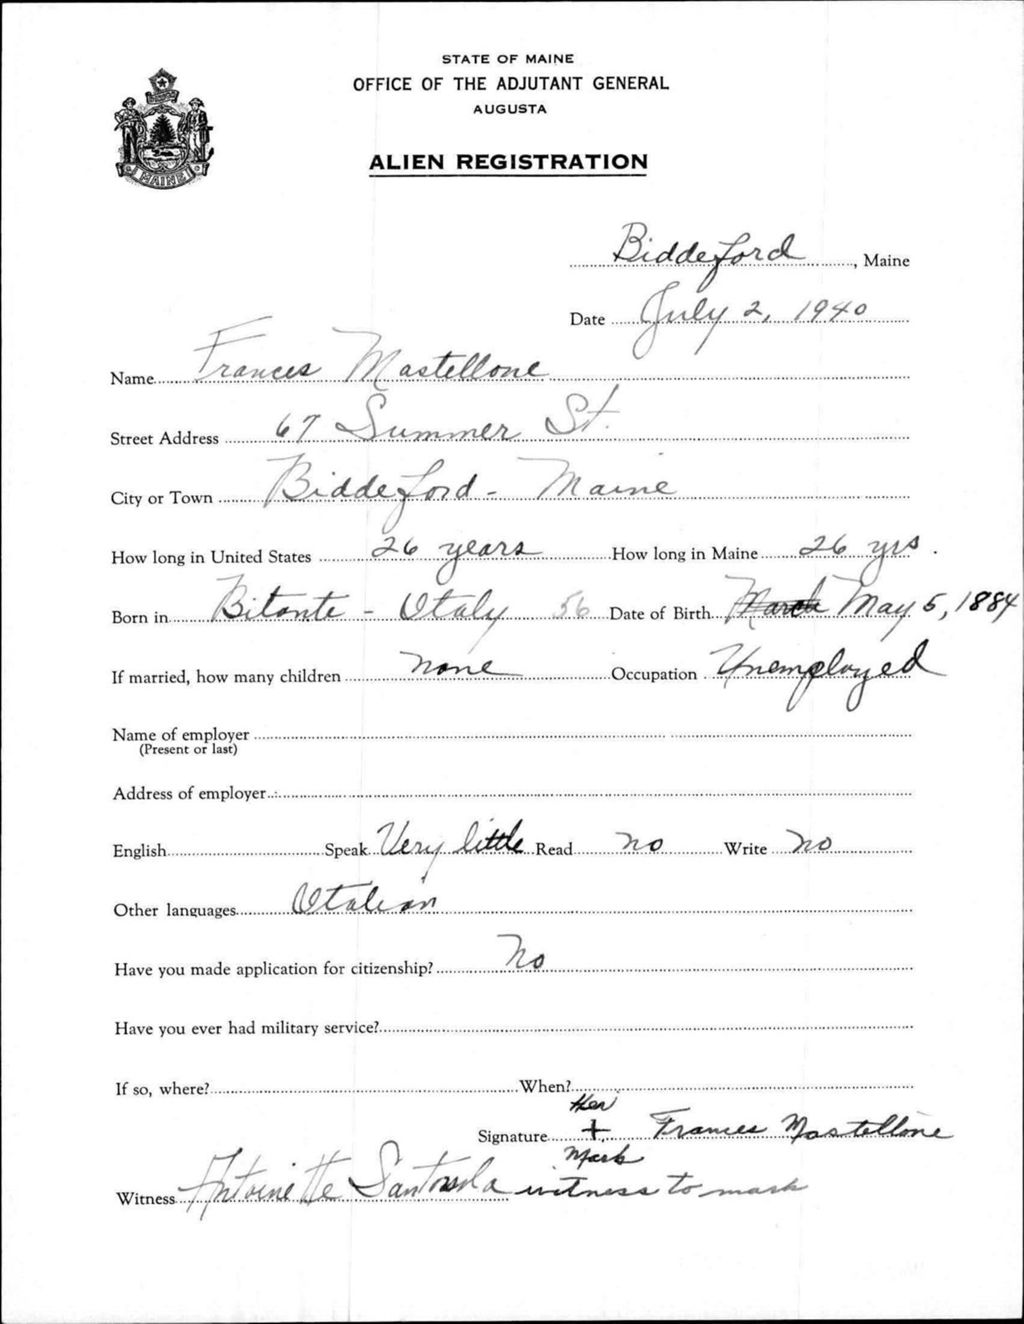 STATE OF MAINE
OFFICE OF THE ADJUTANT GENERAL
AUGUSTA
ALIEN REGISTRATION
MAINE
Biddeford, Maine
Date July 2, 1940
Name Frances Mastellone
Street Address 67 Summer St.
City or Town Biddeford - Maine
How long in United States 26 years How long in Maine 26 yrs.
Born in Bitonto - Italy 56 Date of Birth March May 5, 1884
If married, how many children none Occupation Unemployed
Name of employer
(Present or last)
Address of employer
English Speak Very little Read no Write no
Other languages Italian
Have you made application for citizenship? No
Have you ever had military service?
If so, where? When?
Her
Signature + Frances Mastellone
Mark
Witness Antoinette witness to mark